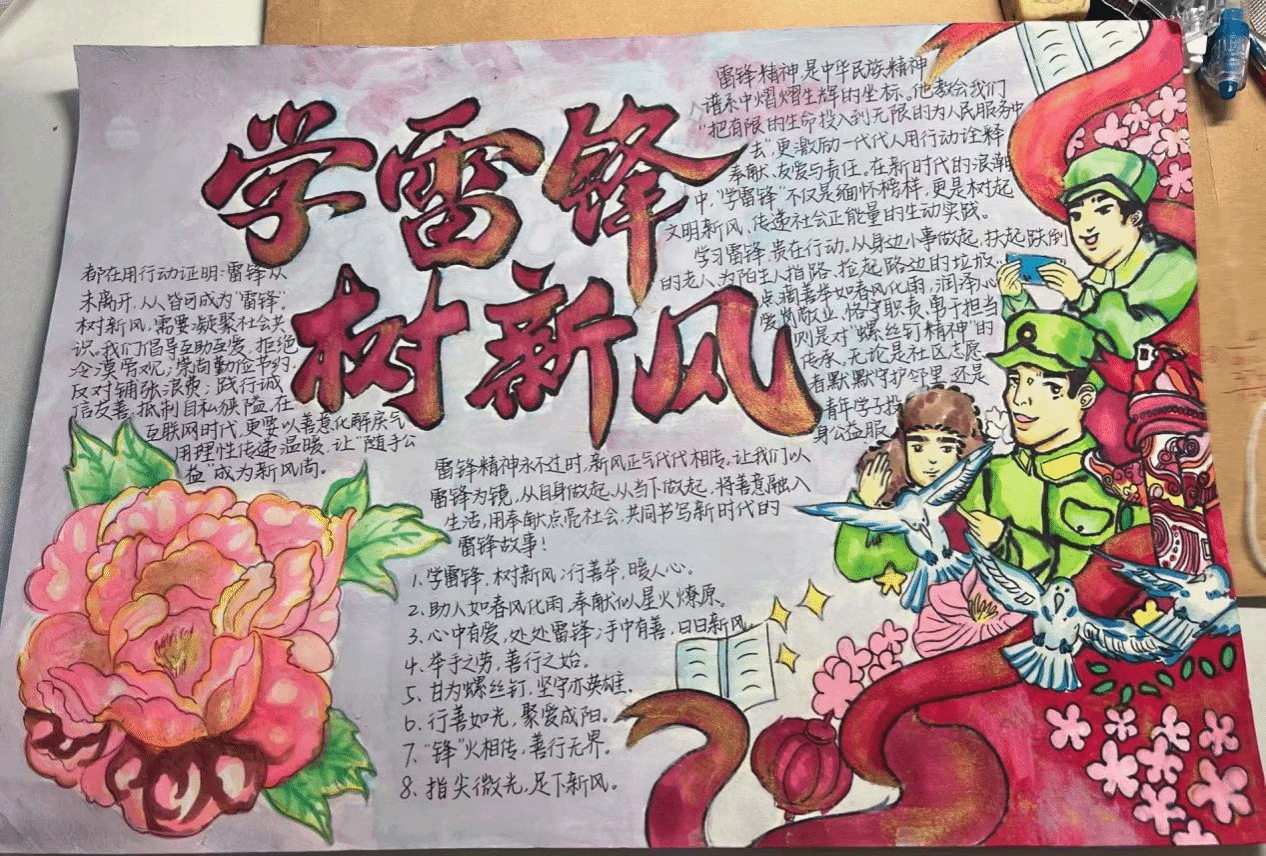 学雷锋
树新风
雷锋精神是中华民族精神
谱系中熠熠生辉的坐标。他教会我们
“把有限的生命投入到无限的为人民服务中
去”,更激励一代代人用行动诠释
奉献、友爱与责任。在新时代的浪潮
中,“学雷锋”不仅是缅怀榜样,更是树起
文明新风、传递社会正能量的生动实践。
学习雷锋,贵在行动。从身边小事做起,扶起跌倒
的老人、为陌生人指路、捡起路边的垃圾..
点滴善举如春风化雨,润泽心
爱岗敬业、恪守职责、勇于担当
则是对“螺丝钉精神”的
传承。无论是社区志愿
者默默守护邻里,还是
青年学子投
身公益服
都在用行动证明:雷锋从
未离开,人人皆可成为“雷锋”。
树新风,需要凝聚社会共
识。我们倡导互助互爱,拒绝
冷漠旁观;崇尚勤俭节约,
反对铺张浪费;践行诚
信友善,抵制自私狭隘。在
互联网时代,更要以善意化解戾气
用理性传递温暖,让“随手公
益”成为新风尚。
雷锋精神永不过时,新风正气代代相传。让我们以
雷锋为镜,从自身做起、从当下做起,将善意融入
生活,用奉献点亮社会,共同书写新时代的
雷锋故事!
1.学雷锋,树新风;行善举,暖人心。
2.助人如春风化雨,奉献似星火燎原。
3.心中有爱,处处雷锋;手中有善,日日新风。
4.举手之劳,善行之始。
5.甘为螺丝钉,坚守亦英雄.
6.行善如光,聚爱成阳。
7.“锋”火相传,善行无界。
8.指尖微光,足下新风。